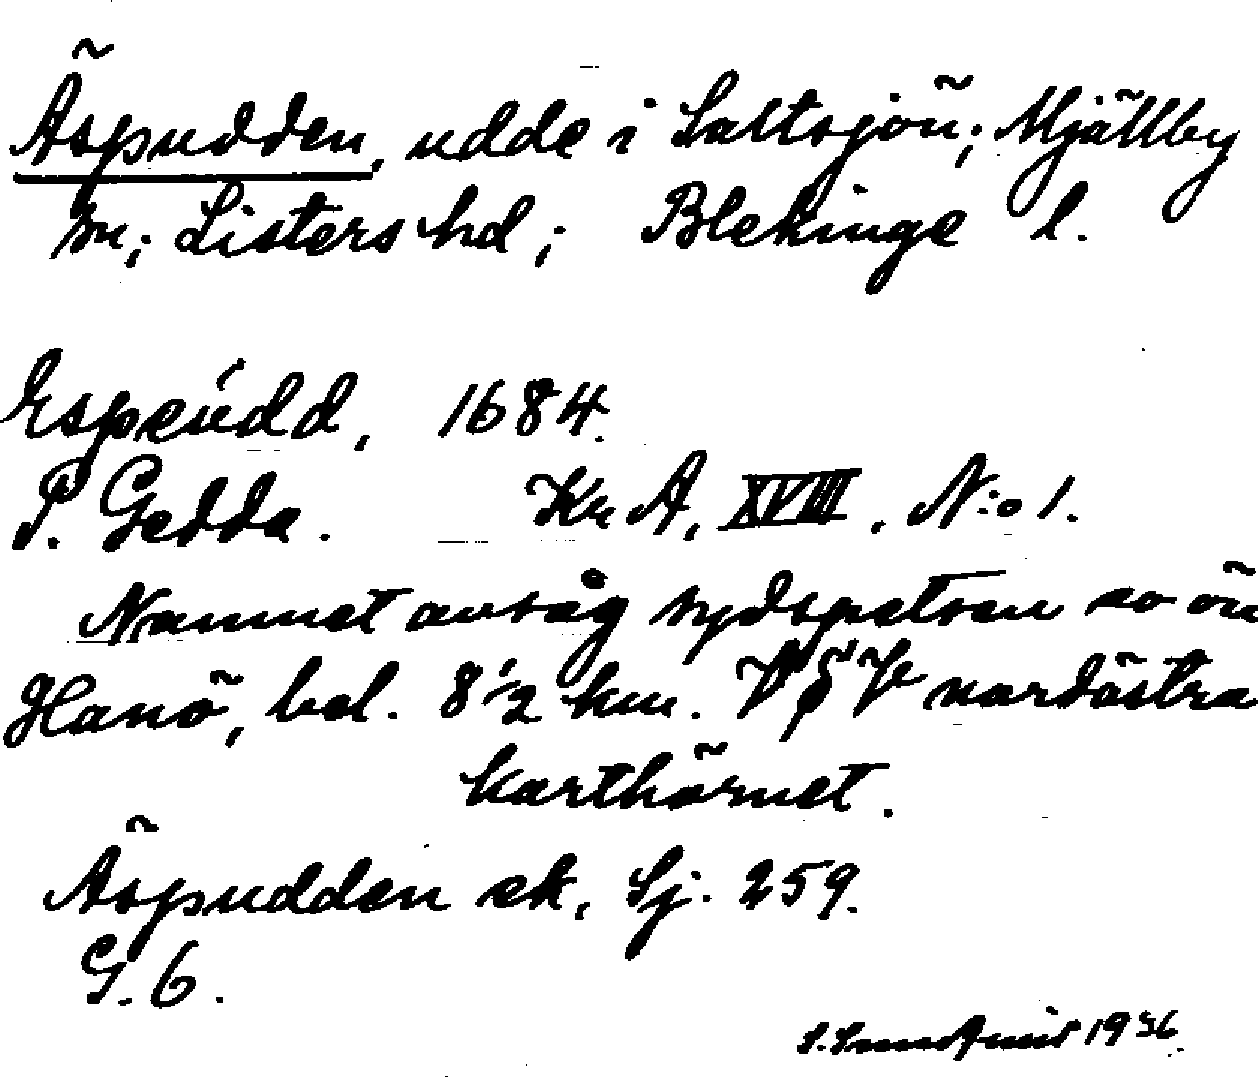 Äspudden, udde i Saltsjön; Mjällby
sn; Listers hd; Blekinge l.
Espeúdd, 1684.
P. Gedda. Kr A, XVIII, N:o 1.
Namnet avsåg sydspetsen av ön
Hanö, bel. 8 1/2 km. VSV nordöstra
karthörnet.
Äspudden ek, Sj. 259.
G. 6.
1936